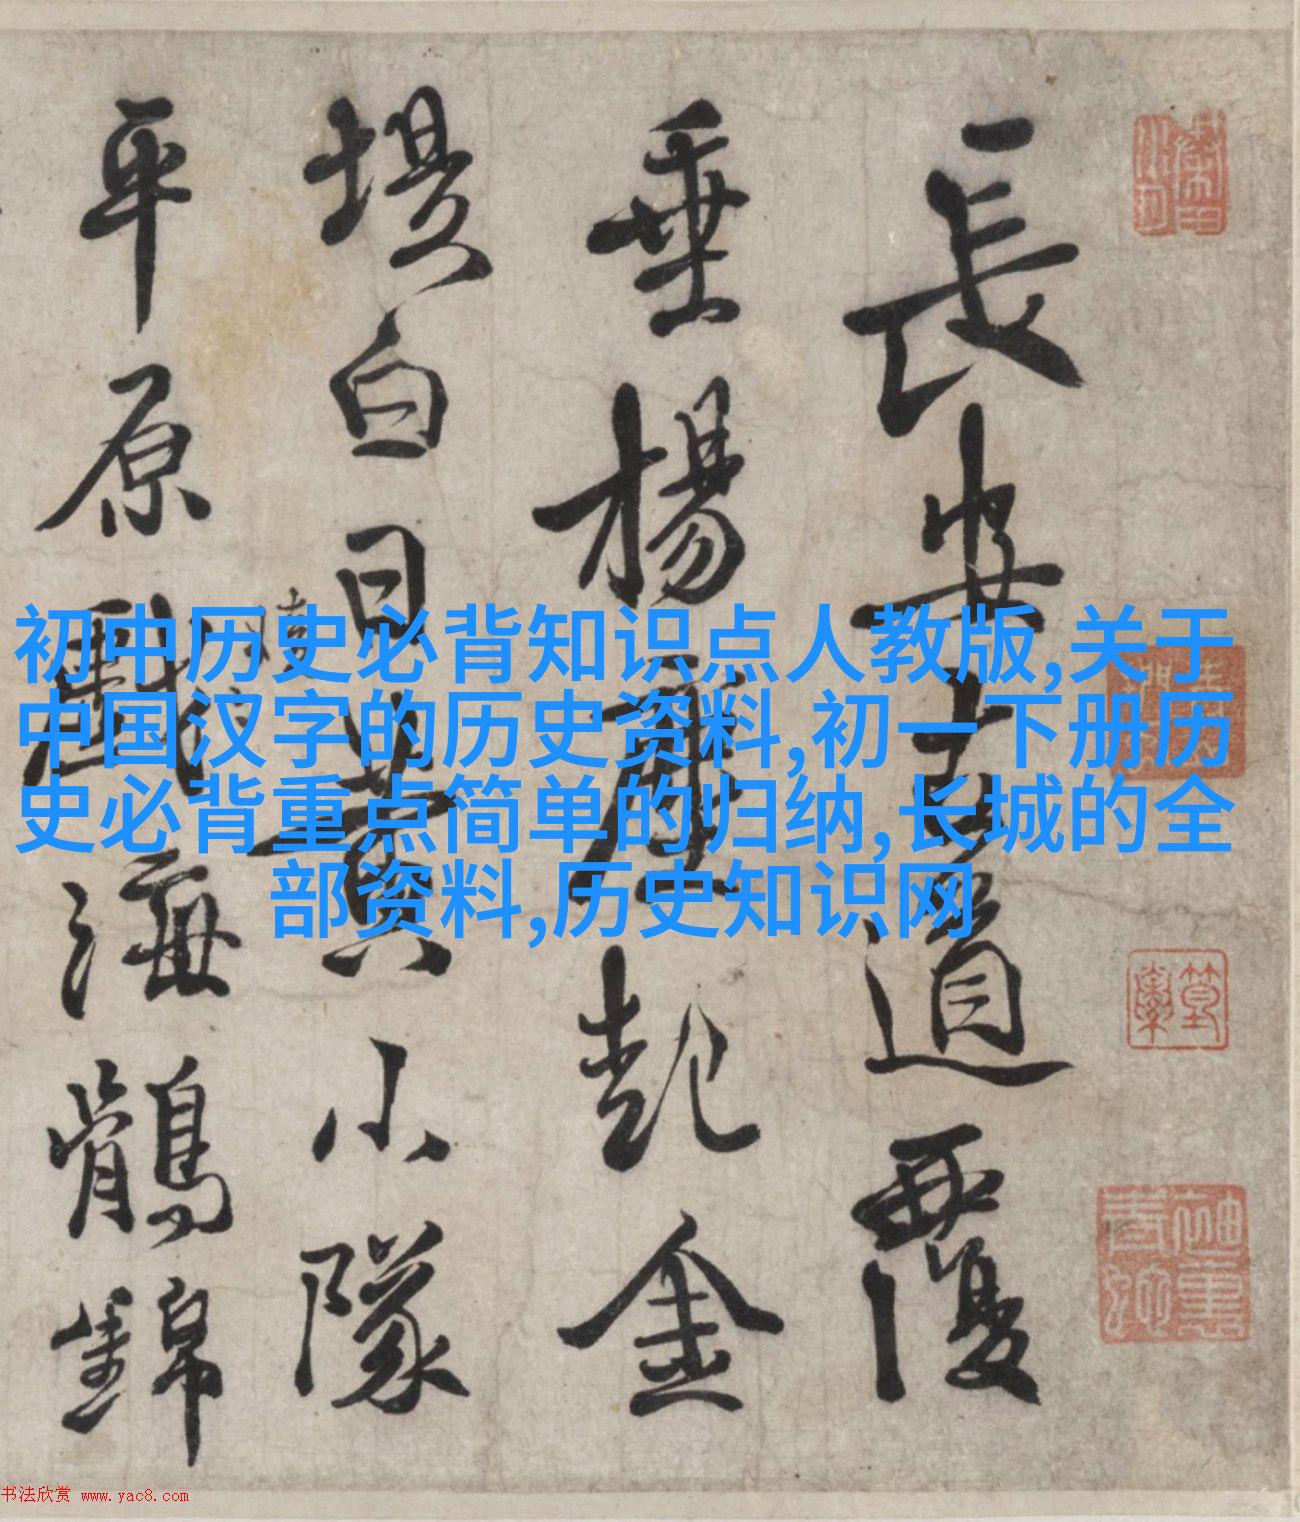 長安古道覆
垂楊塵起金
堤白日黃小隊
平原海鶻錦
初中历史必背知识点人教版,关于
中国汉字的历史资料,初一下册历
史必背重点简单的归纳,长城的全
部资料,历史知识网
书法欣赏 www.yac8.com